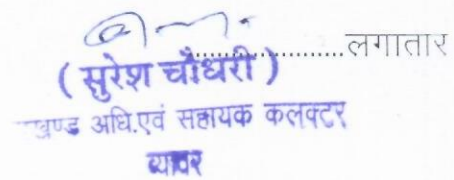 ....................लगातार
( सुरेश चौधरी )
खण्ड अधि.एवं सहायक कलक्टर
ब्यावर